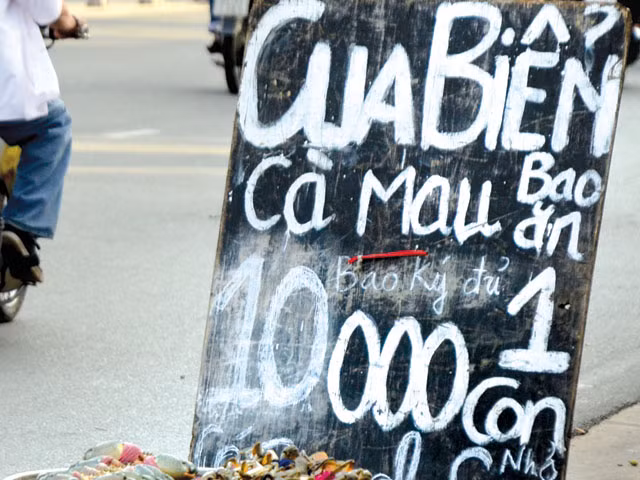 CUA BIỂN
Cà Mau Bao ăn
Bao ký đủ
10000 1 Con
Nhỏ